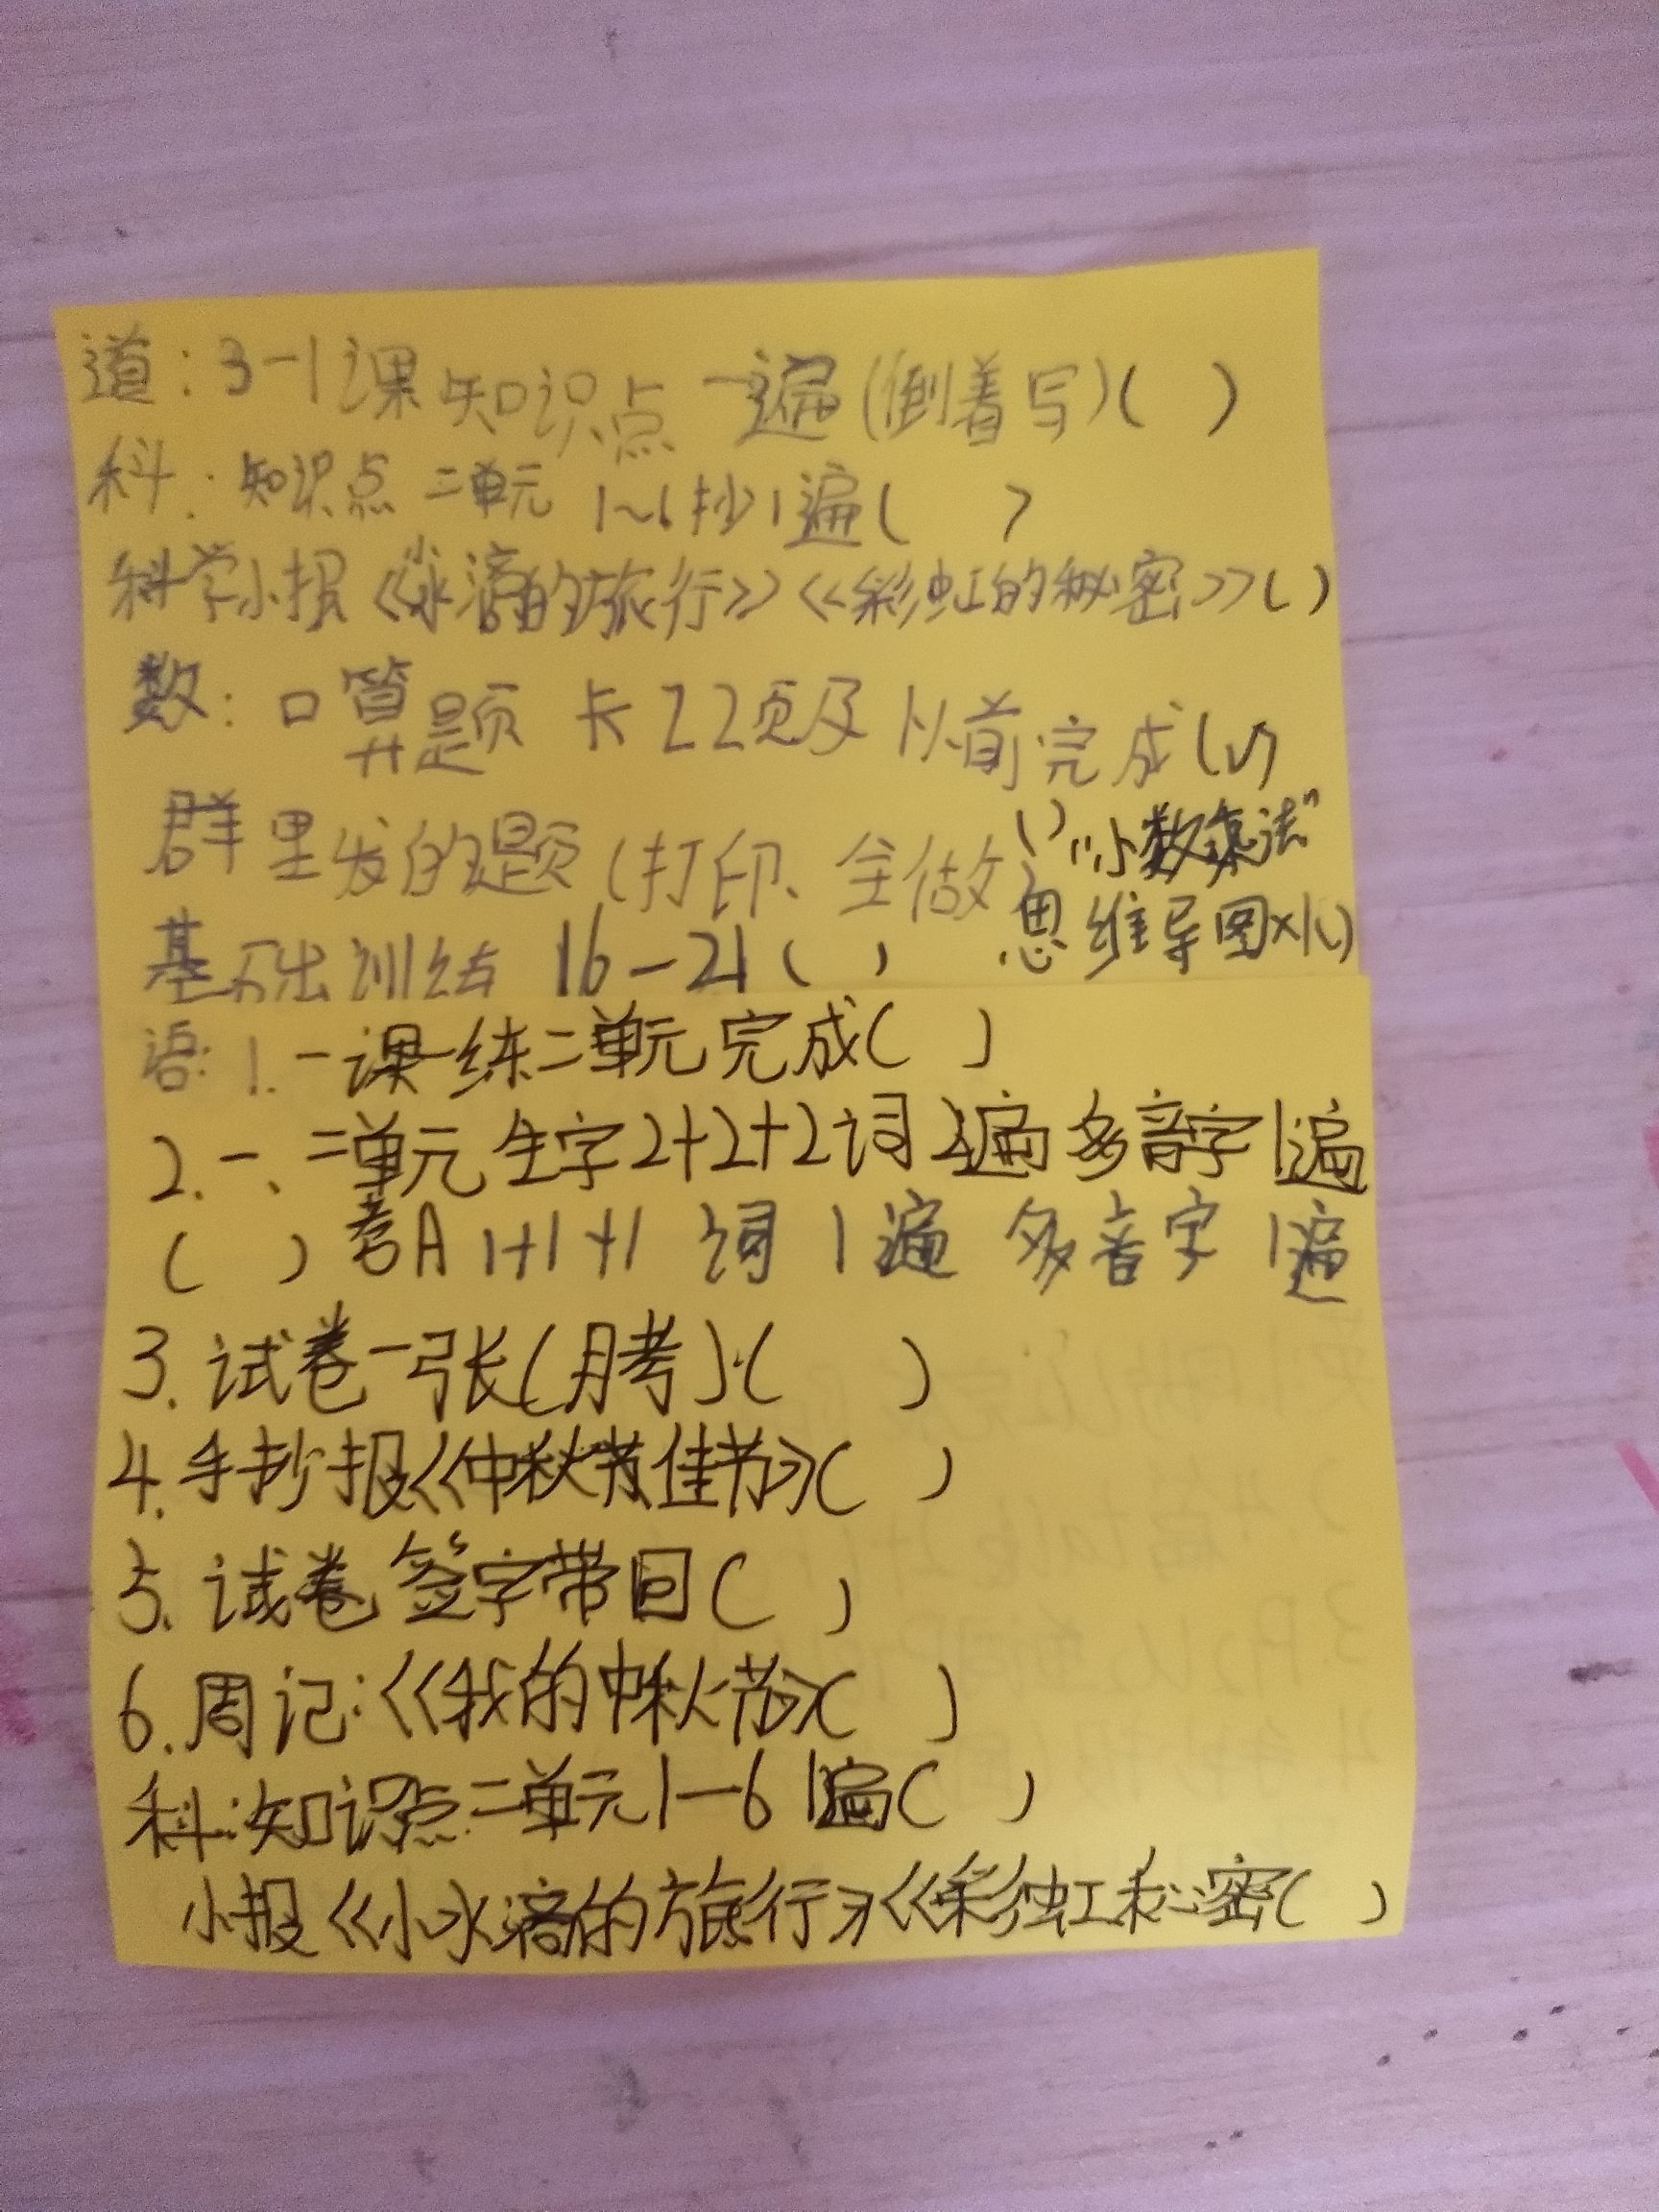 道:3-1课知识点一遍(倒着写)( )
科:知识点二单元 1~6抄1遍( )
科学小报《水滴的旅行》《彩虹的秘密》( )
数:口算题卡22页及以前完成(√)
群里发的题(打印、全做)( )"小数乘法"
基础训练 16-21( ) 思维导图×1( )
语:1.一课一练二单元完成( )
2.一、二单元生字2+2+2词2遍多音字1遍
( )考A 1+1+1 词1遍 多音字1遍
3.试卷一张(月考)( )
4.手抄报《中秋节佳节》( )
5.试卷签字带回( )
6.周记:《我的中秋节》( )
科:知识点二单元1-6 1遍( )
小报《小水滴的旅行》《彩虹秘密( )